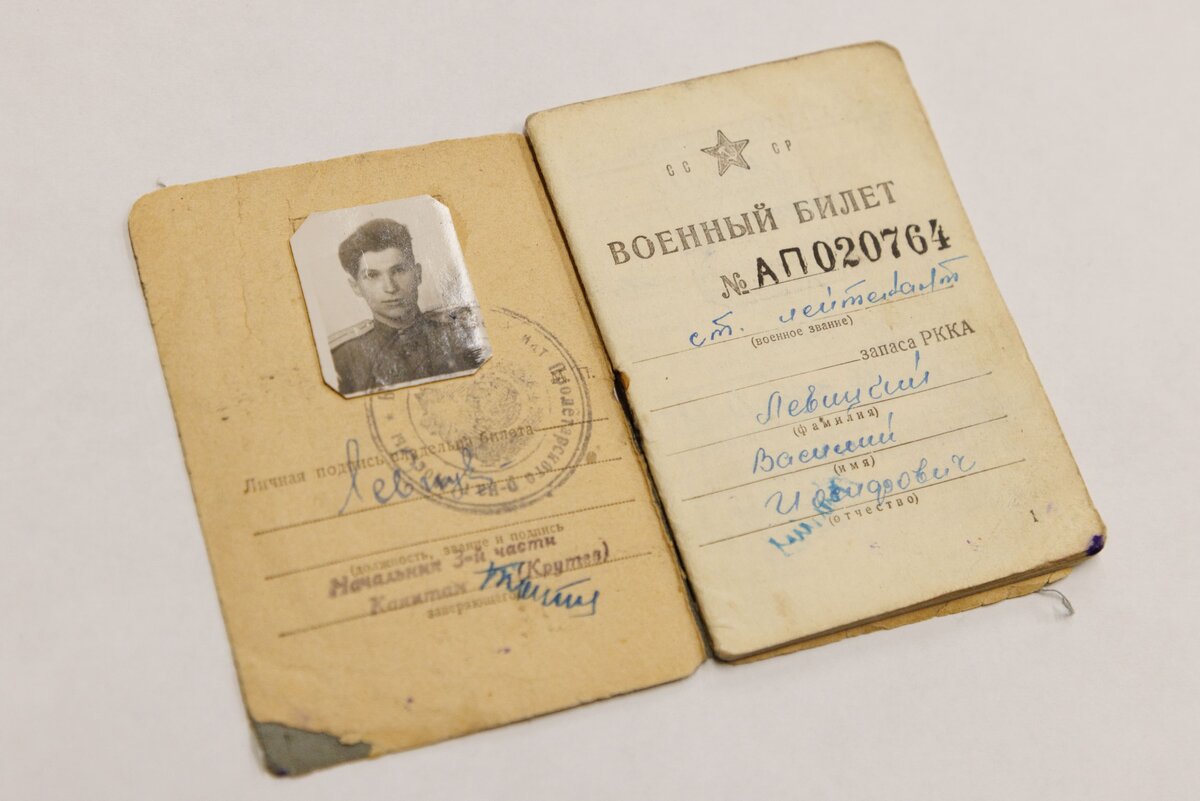 Личная подпись владельца билета
Левиц
(должность, звание и подпись
Начальник 3-й части
Капитан (Крутев)
заверяющего
Пролетарского р-на
СС СР
ВОЕННЫЙ БИЛЕТ
№ АП 020764
ст. лейтенант
(военное звание)
запаса РККА
Левицкий
(фамилия)
Василий
(имя)
Иосифович
(отчество)
1